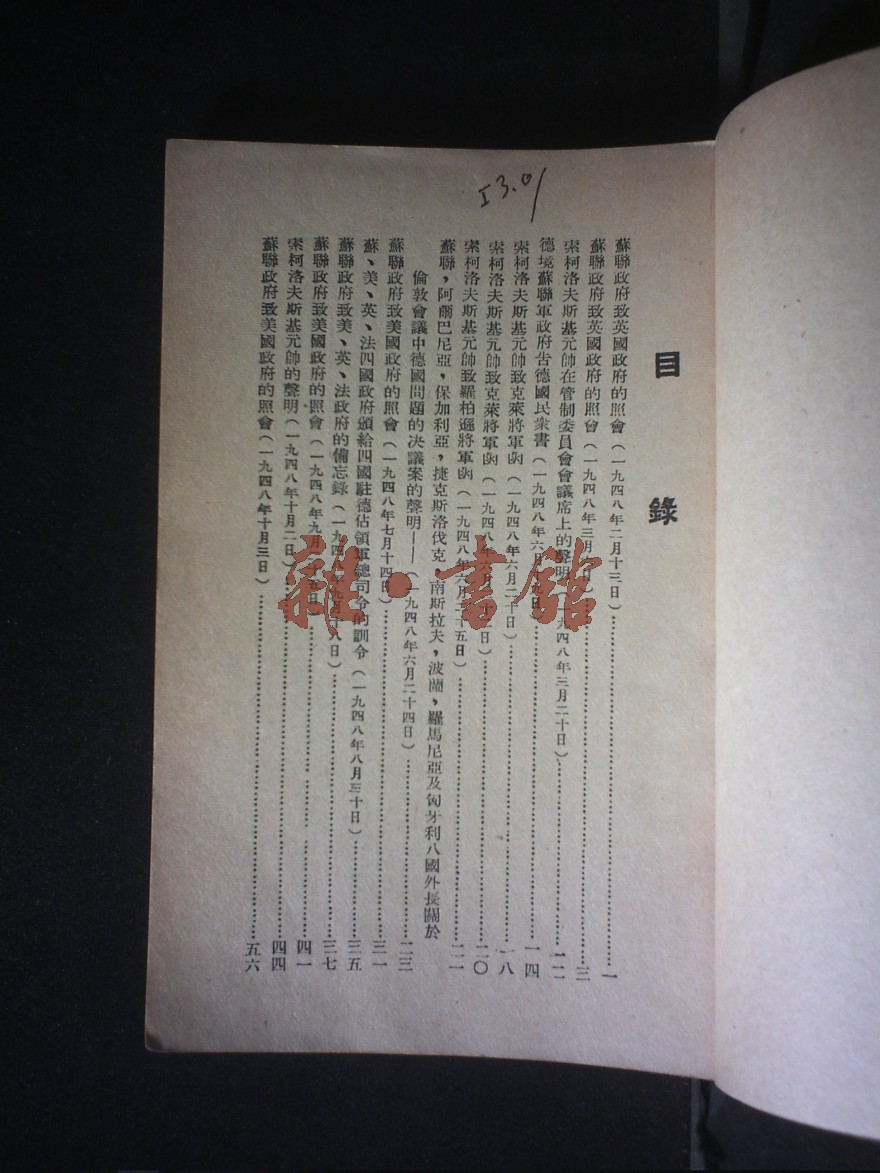 I3.01
目錄
蘇聯政府致英國政府的照會(一九四八年二月十三日)……一
蘇聯政府致英國政府的照會(一九四八年三月 日)……三
索柯洛夫斯基元帥在管制委員會會議席上的聲明(一九四八年三月二十日)……一二
德境蘇聯軍政府告德國民衆書(一九四八年六月 九日)……一四
索柯洛夫斯基元帥致克萊將軍函(一九四八年六月二十日)……一八
索柯洛夫斯基元帥致克萊將軍函(一九四八年六月 十 日)……二〇
索柯洛夫斯基元帥致羅柏遜將軍函(一九四八年六月二十五日)……二一
蘇聯,阿爾巴尼亞,保加利亞,捷克斯洛伐克,南斯拉夫,波蘭,羅馬尼亞及匈牙利八國外長關於
倫敦會議中德國問題的决議案的聲明——(一九四八年六月二十四日)……二三
蘇聯政府致美國政府的照會(一九四八年七月十四日)……三一
蘇、美、英、法四國政府頒給四國駐德佔領軍總司令的訓令(一九四八年八月三十日)……三五
蘇聯政府致美、英、法政府的備忘錄(一九四八年九月十八日)……三七
蘇聯政府致美國政府的照會(一九四八年九月 十五日)……四一
索柯洛夫斯基元帥的聲明(一九四八年十月二日)……四四
蘇聯政府致美國政府的照會(一九四八年十月三日)……五六
雜·書館